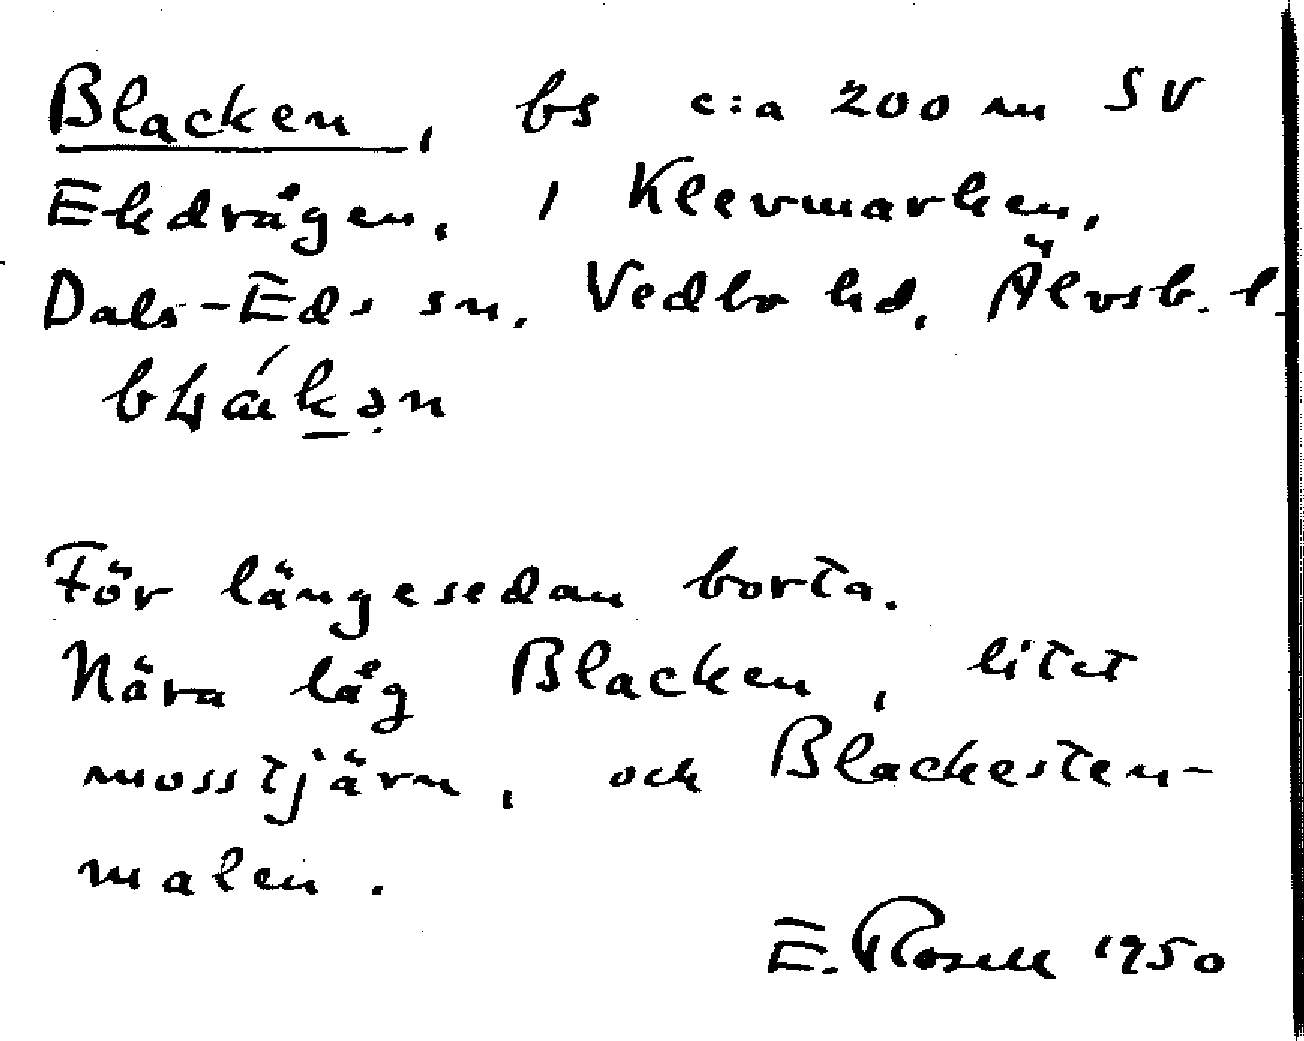 Blacken, bs c:a 200 m SV
Ekdrågen, i Klevmarken,
Dals-Eds sn. Vedbo hd. Älvsb. l.
För längesedan borta.
Nära låg Blacken, litet
mosstjärn, och Blackesten-
malen.
E. Rosell 1950